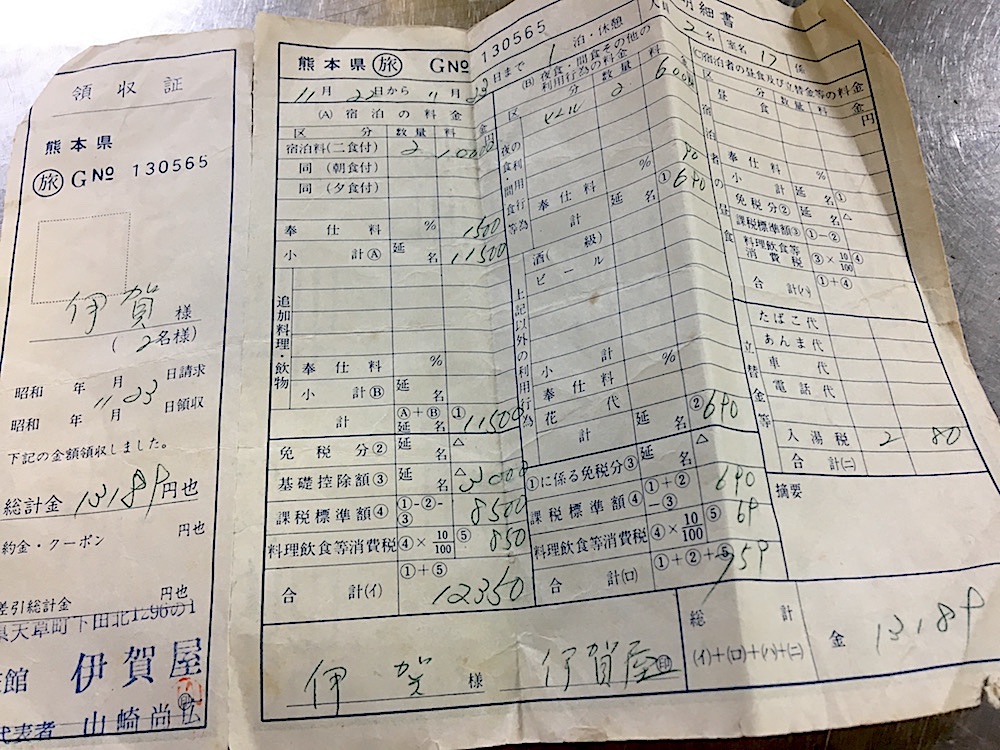 領収証
熊本県
旅 GNo 130565
伊賀 様
(2名様)
昭和 年 月 日請求
昭和 年 11月 23日領収
下記の金額領収しました。
総計金 13,189円也
約金・クーポン 円也
差引総計金 円也
県天草町下田北1296の1
館 伊賀屋
代表者 山崎尚弘
熊本県 旅 GNo 130565
明細書
11月22日から11月23日まで1泊・休憩
人員 2名 室名 17 係
(A) 宿泊の料金
区分 数量 料金
宿泊料(二食付) 2 10000
同 (朝食付)
同 (夕食付)
奉仕料 % 1500
小計Ⓐ 延 名 11500
追加料理・飲物
奉仕料 %
小計Ⓑ 延 名
計 Ⓐ+Ⓑ 延 名 ① 11500
免税分② 延 名 △
基礎控除額③ 延 名 △ 3000
課税標準額④ ①-②-③ 8500
料理飲食等消費税 ④×10/100 ⑤ 850
合計(イ) ①+⑤ 12350
(B) 夜食・間食その他の利用行為の料金
区分 数量 料金
夜食・間食等の利用行為
ビール 2 600
奉仕料 % 90
計 延 名 ① 690
上記以外の利用行為
酒( 級)
ビール
小計
奉仕料 %
花代
計 延 名 ② 690
①に係る免税分③ 延 名 △
課税標準額④ ①+②-③ 690
料理飲食等消費税 ④×10/100 ⑤ 69
合計(ロ) ①+②+⑤ 759
(C) 宿泊者の昼食及び立替金等の料金
区分 数量 料金
宿泊者の昼食
昼食 円
奉仕料 %
小計 延 名 ①
免税分② 延 名 △
課税標準額③ ①-②
料理飲食等消費税 ③×10/100 ④
合計(ハ) ①+④
立替金等
たばこ代
あんま代
車代
電話代
入湯税 2 80
合計(ニ)
摘要
伊賀 様 伊賀屋 印
総計
(イ)+(ロ)+(ハ)+(ニ)
金 13189